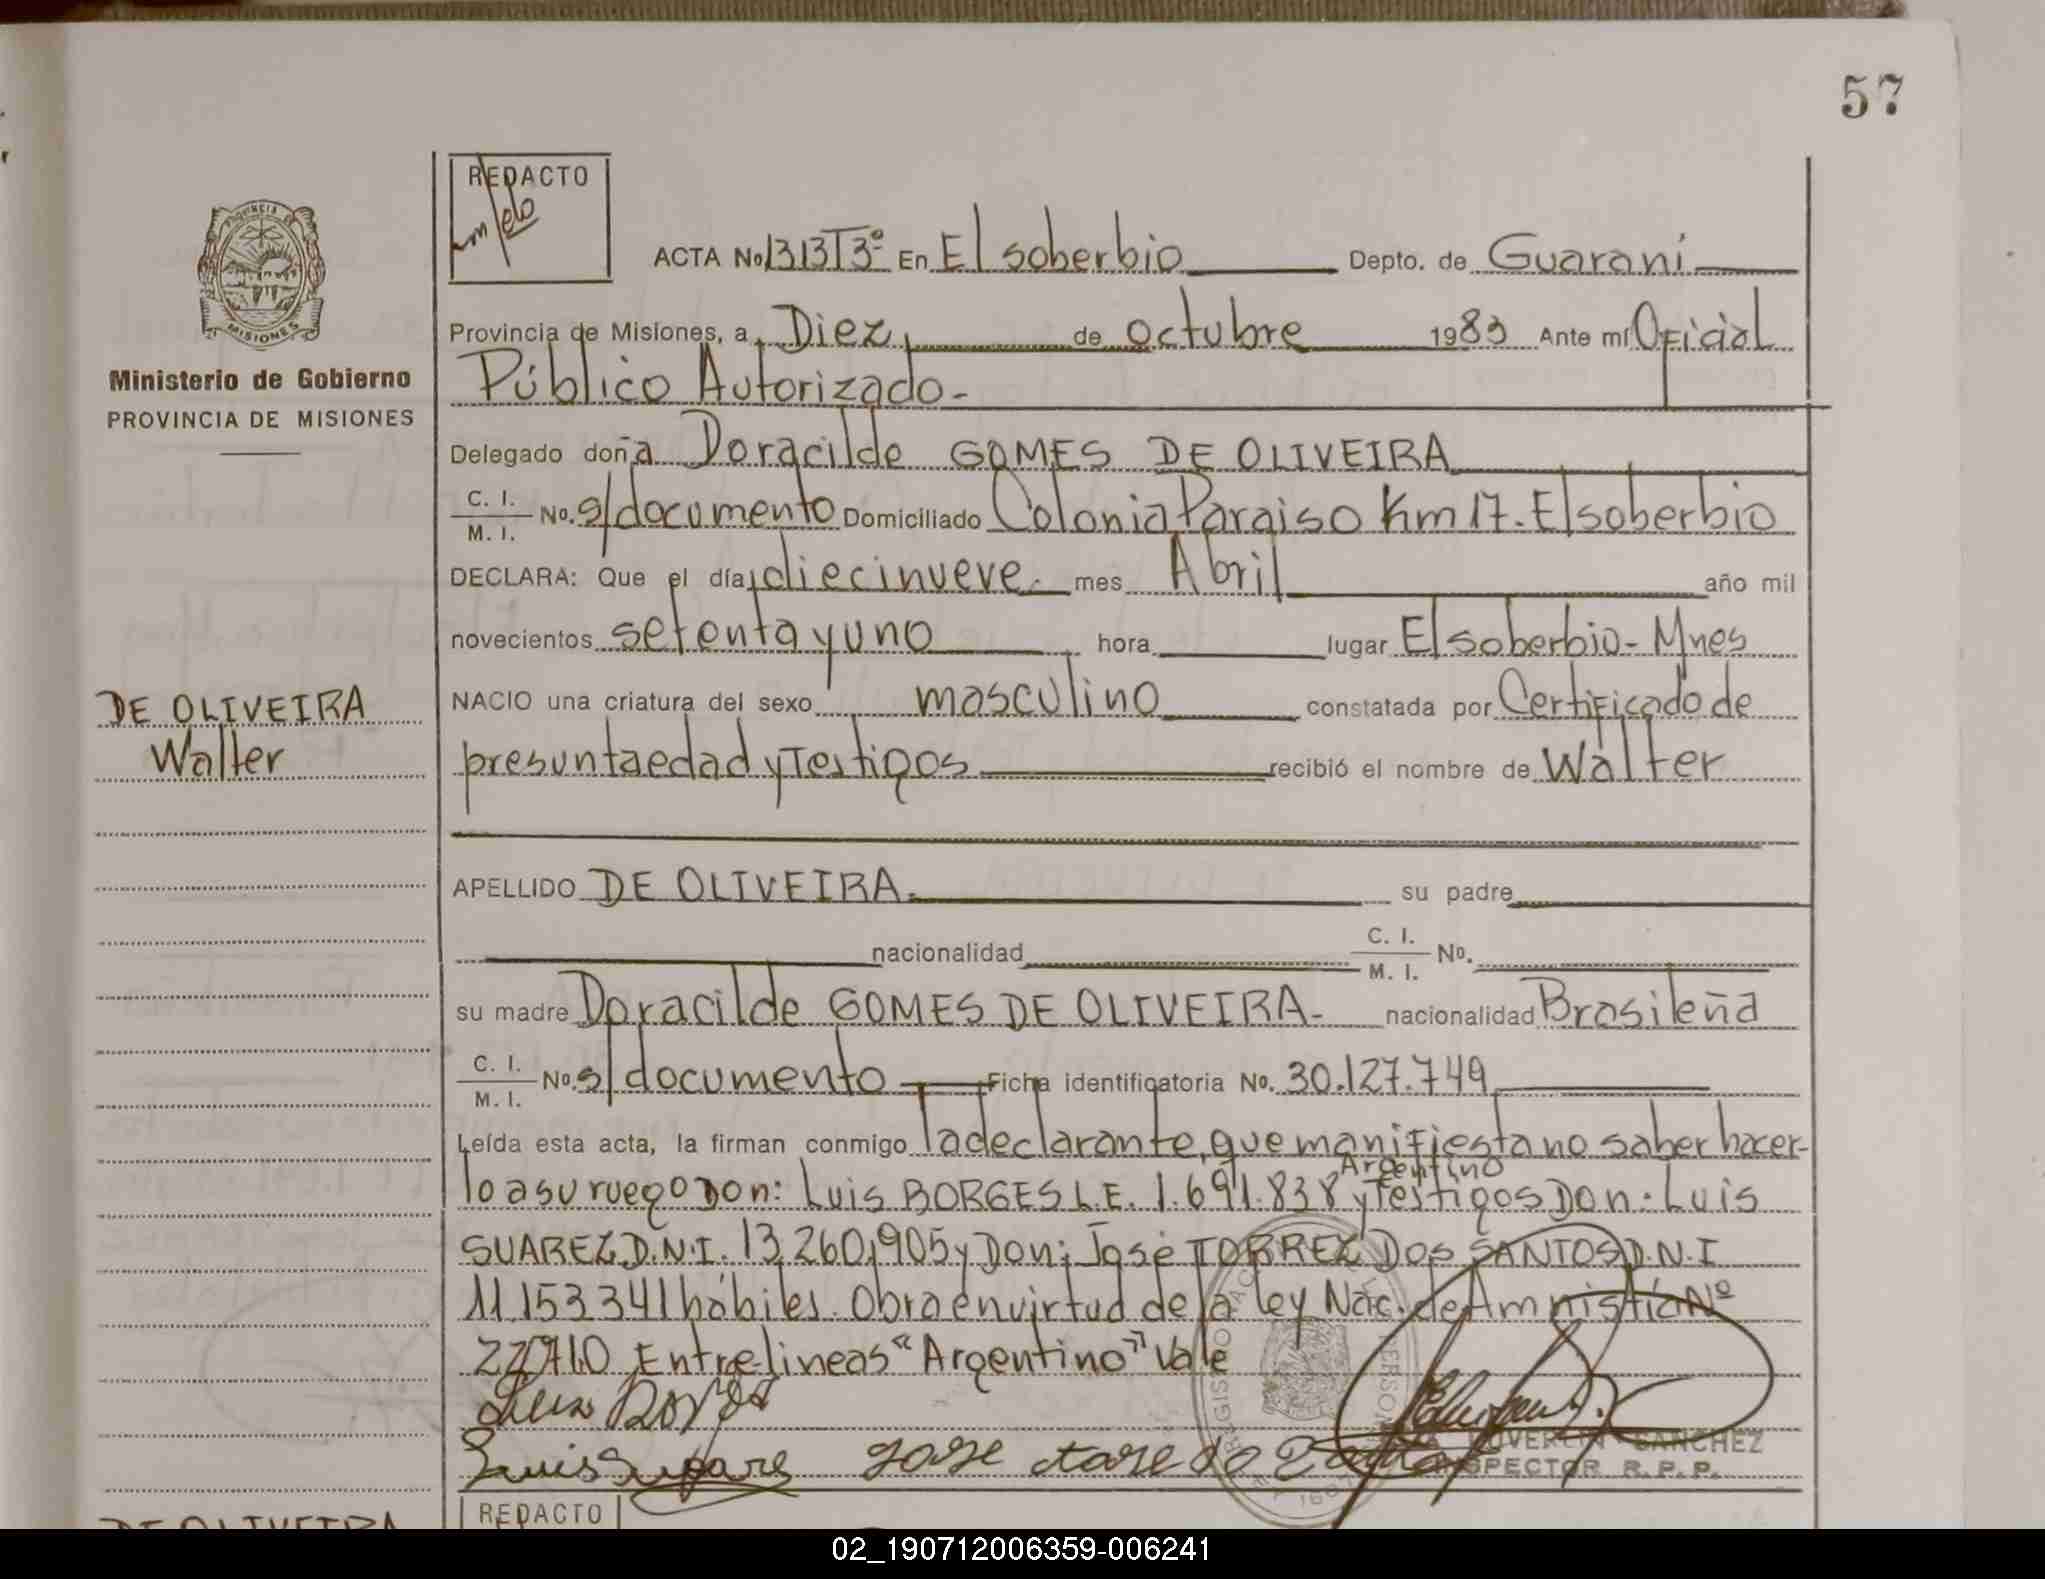 57
REDACTO
ACTA No 313T3º En El soberbio Depto. de Guaraní
PROVINCIA DE
MISIONES
Provincia de Misiones, a Diez, de octubre 1983 Ante mí Oficial
Ministerio de Gobierno
PROVINCIA DE MISIONES
Público Autorizado-
Delegado doña Doracilde GOMES DE OLIVEIRA
C. I.
M. I. No. s/documento Domiciliado Colonia Paraiso Km 17. El soberbio
DECLARA: Que el día diecinueve. mes Abril año mil
novecientos setenta y uno hora lugar El soberbio- Mnes
DE OLIVEIRA
Walter
NACIO una criatura del sexo masculino constatada por Certificado de
presunta edad y Testigos recibió el nombre de Walter
APELLIDO DE OLIVEIRA. su padre
nacionalidad C. I.
M. I. No.
su madre Doracilde GOMES DE OLIVEIRA- nacionalidad Brasileña
C. I.
M. I. No. s/documento Ficha identificatoria No. 30.127.749
Leída esta acta, la firman conmigo la declarante, que manifiesta no saber hacer-
Argentino
lo a su ruego Don: Luis BORGES L.E. 1.691.838 y Testigos Don: Luis
SUAREZ D.N.I. 13.260.905 y Don: José TORREZ DOS SANTOS D.N.I
11.153.341 hábiles. Obra en virtud de la ley Nac. de Amnistía Nº
Entre-lineas "Argentino" Vale
Luis Borges
Luis Suares Jose
SANCHEZ
INSPECTOR R. P. P.
REGISTRO
REDACTO
DE OLIVEIRA
02_190712006359-006241